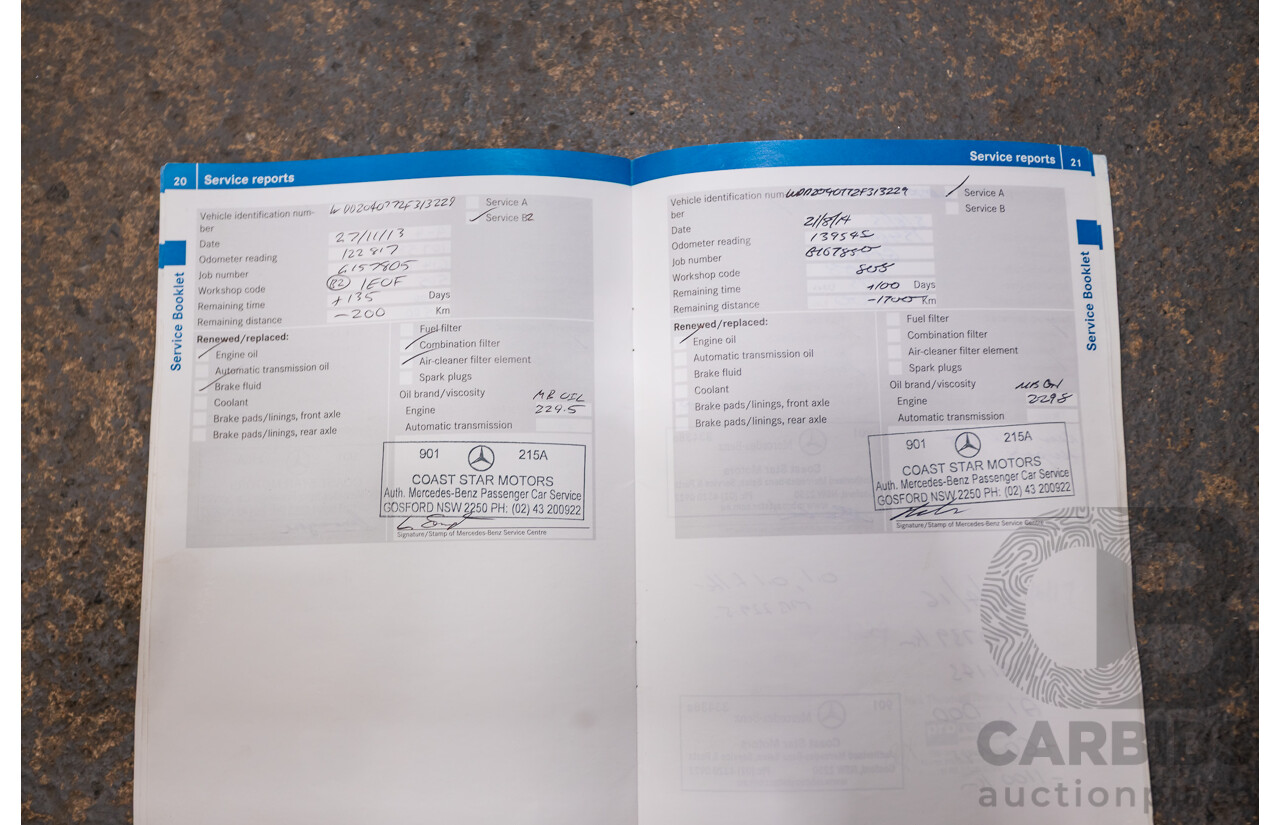 20 Service reports
Vehicle identification num-
ber
WDD2040772F313229
Service A
Service B2
Date 27/11/13
Odometer reading 122817
Job number 6157805
Workshop code (B2) 1EOF
Remaining time +135 Days
Remaining distance -200 Km
Renewed/replaced:
Engine oil
Automatic transmission oil
Brake fluid
Coolant
Brake pads/linings, front axle
Brake pads/linings, rear axle
Fuel filter
Combination filter
Air-cleaner filter element
Spark plugs
Oil brand/viscosity
Engine 229.5
Automatic transmission
901 215A
COAST STAR MOTORS
Auth. Mercedes-Benz Passenger Car Service
GOSFORD NSW 2250 PH: (02) 43 200922
Signature/Stamp of Mercedes-Benz Service Centre
Service Booklet
Service reports 21
Vehicle identification num-
ber
Service A
Service B
Date 21/8/14
Odometer reading 139545
Job number
Workshop code
Remaining time +100 Days
Remaining distance -1700 Km
Renewed/replaced:
Engine oil
Automatic transmission oil
Brake fluid
Coolant
Brake pads/linings, front axle
Brake pads/linings, rear axle
Fuel filter
Combination filter
Air-cleaner filter element
Spark plugs
Oil brand/viscosity
Engine
Automatic transmission
901 215A
COAST STAR MOTORS
Auth. Mercedes-Benz Passenger Car Service
GOSFORD NSW 2250 PH: (02) 43 200922
Signature/Stamp of Mercedes-Benz Service Centre
Service Booklet
CARBIDS